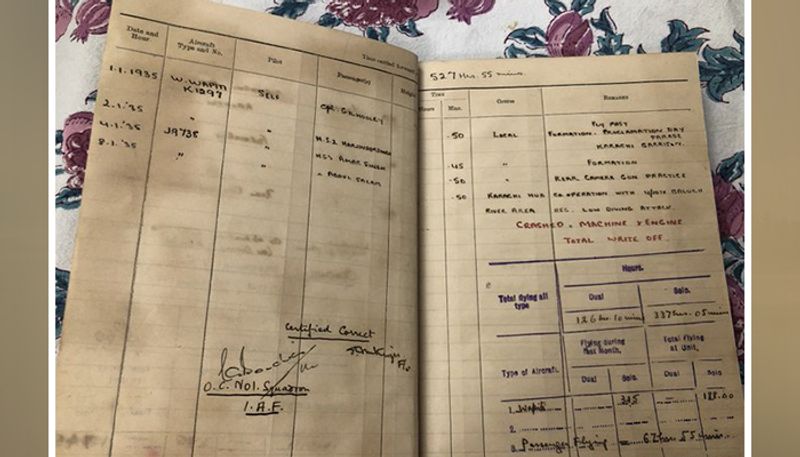 Date and Hour
Aircraft Type and No.
Pilot
Passenger(s)
Time carried forward
Height
1.1.1935 W. WAPITI K1297 SELF CPL
2.1.'35 " "
4.1.'35 J9735 " H.S.2 HARJINDER SINGH
8.1.'35 " " HS3 AMAR SINGH
" ABDUL SALAM
Certified Correct
O.C. NO1. SQUADRON
I.A.F.
527 Hrs. 55 mins.
Time
Hours
Min.
Course
Remarks
.50 LOCAL FLY PAST
FORMATION. PROCLAMATION DAY
PARADE
KARACHI GARRISON.
.45 " FORMATION
.50 " REAR CAMERA GUN PRACTICE
.50 KARACHI HUB CO-OPERATION WITH BALUCH
RIVER AREA REG. LOW DIVING ATTACK.
CRASHED. MACHINE & ENGINE
TOTAL WRITE OFF.
Total flying all type
Hours.
Dual
Solo.
126 hrs. 10 mins
337 hrs. 05 mins
Type of Aircraft.
Flying during last Month.
Total flying at Unit.
Dual Solo. Dual Solo.
1. Wapiti 3.15
2.
3. Passenger Flying — 62 hrs. 55 mins.